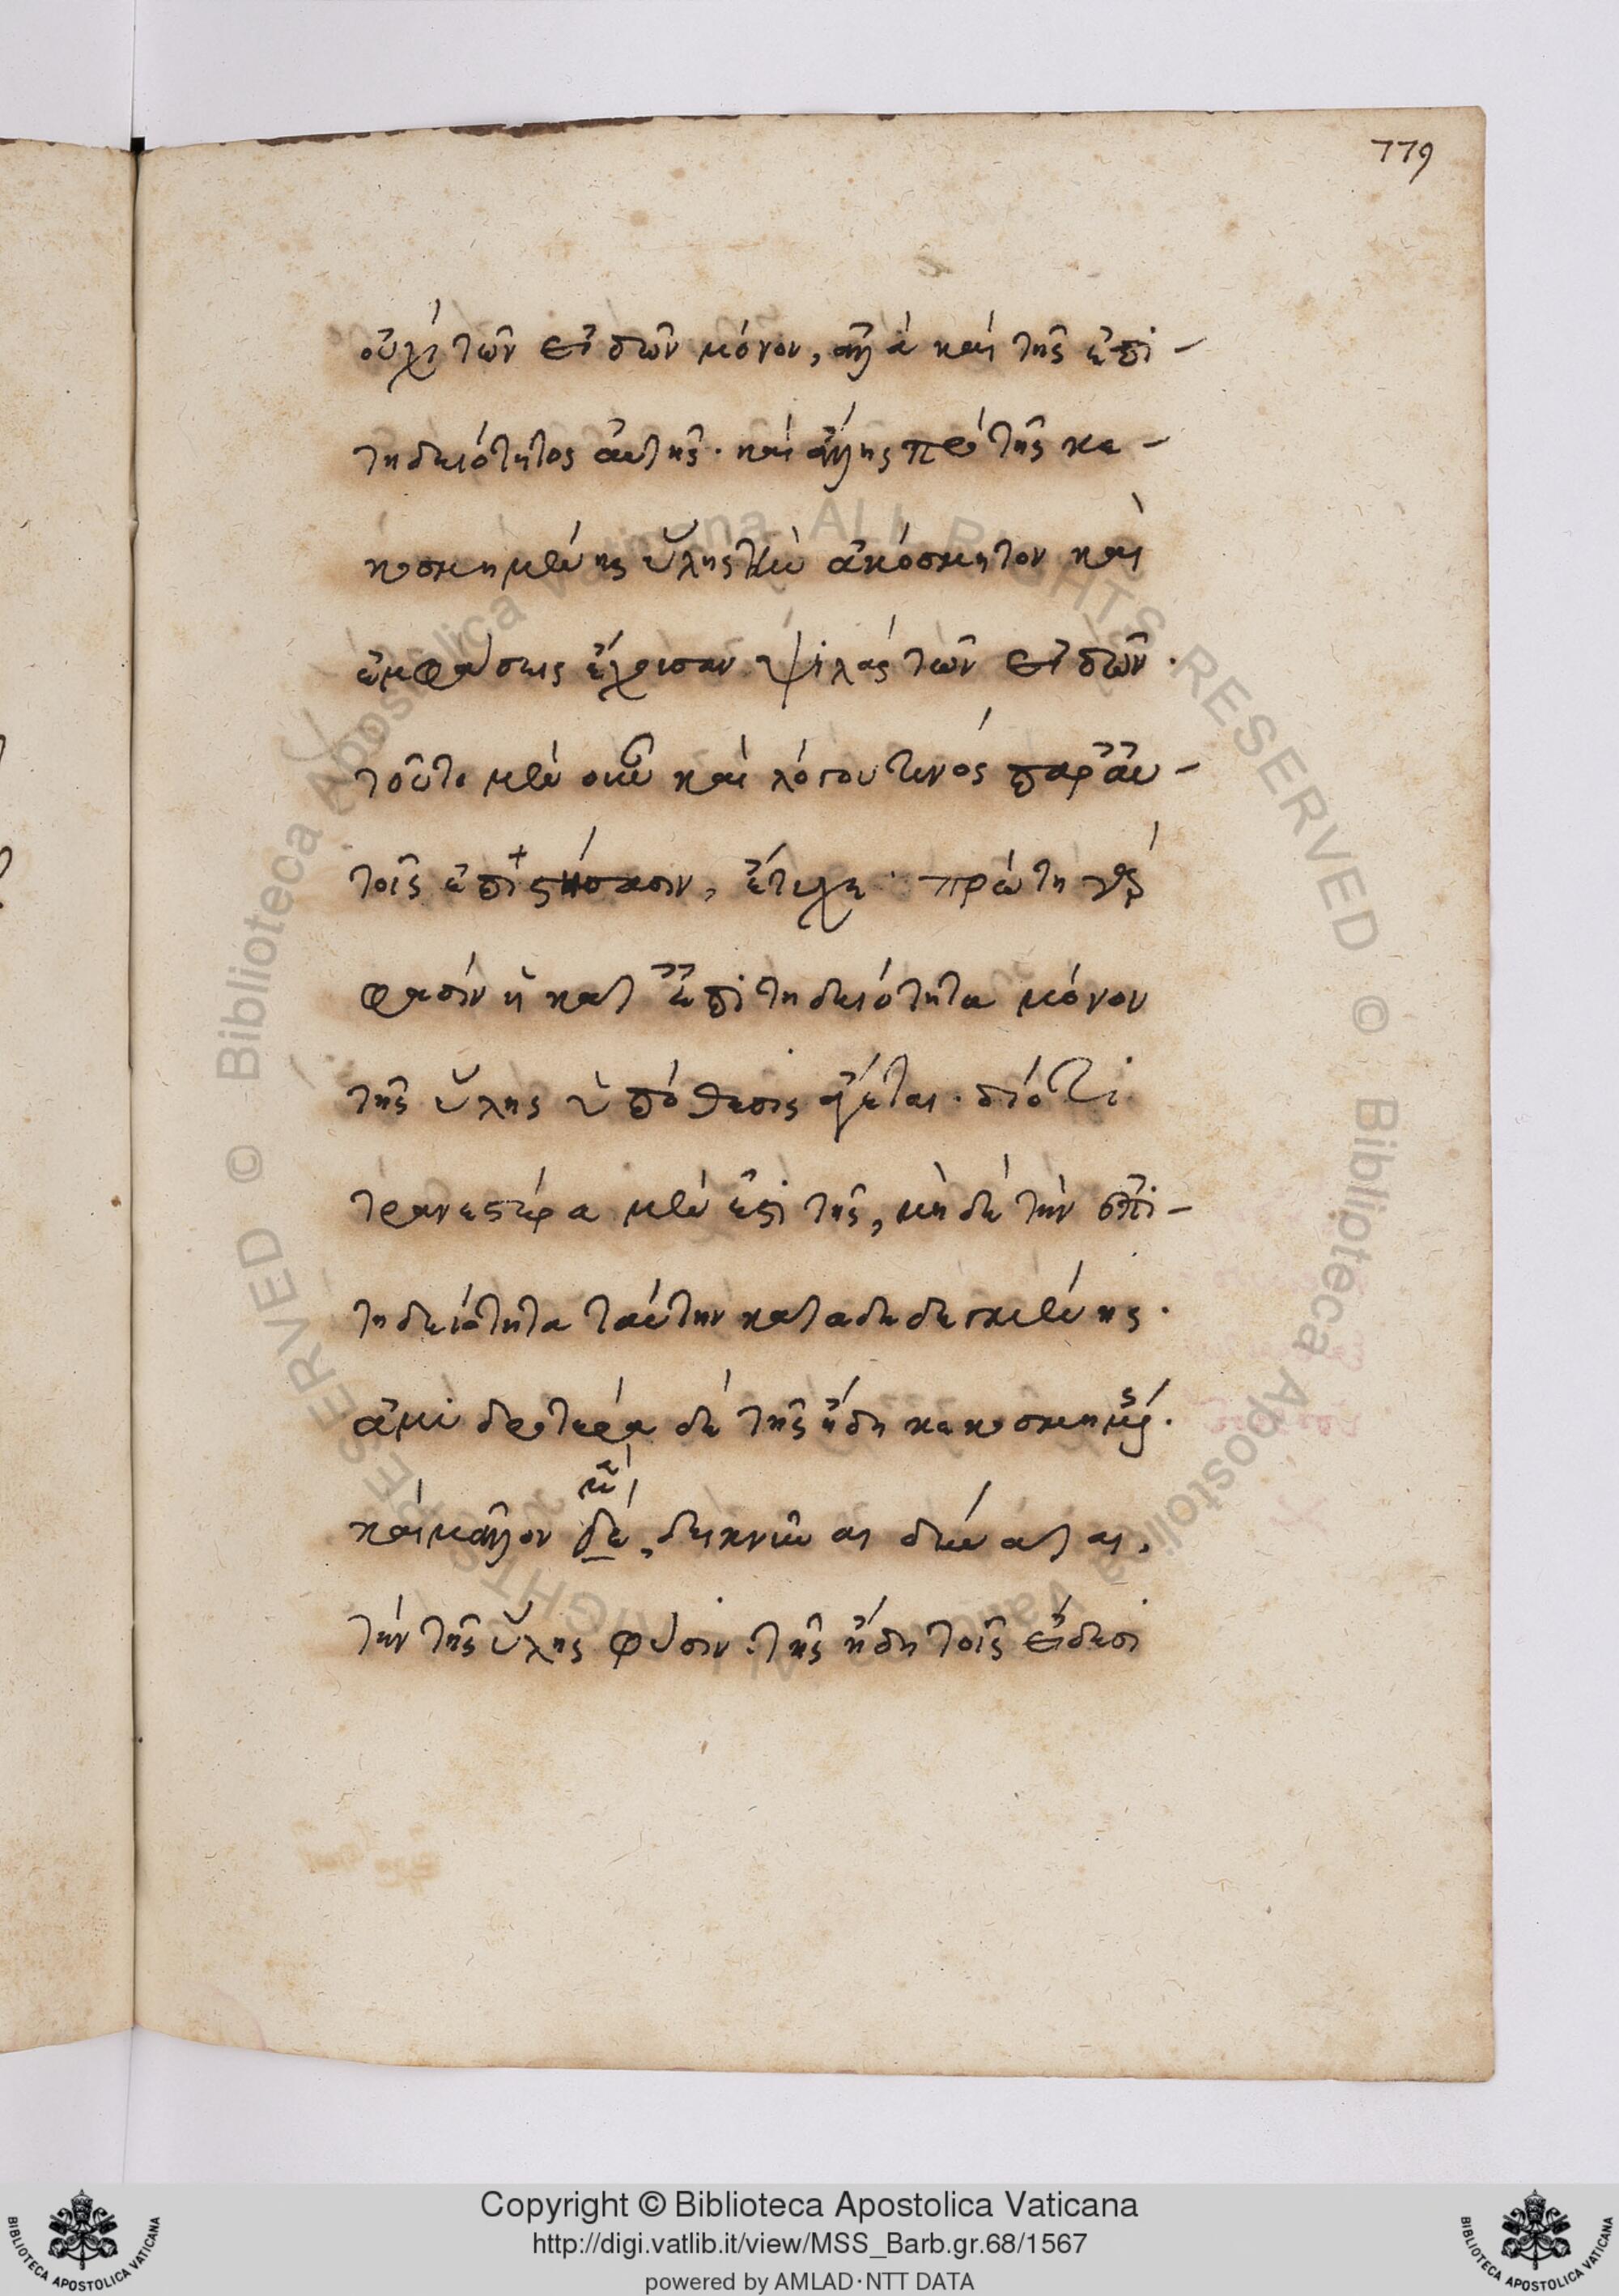 779
οὐχὶ τῶν εἰδῶν μόνον, ἀλλὰ καὶ τῆς ἐπι-
τηδειότητος αὐτῆς. καὶ ἄλλης πρὸ τῆς κε-
κοσμημένης ὕλης τὴν ἀκόσμητον καὶ
ἐμφάσεις ἔχουσαν ψιλὰς τῶν εἰδῶν.
τοῦτο μὲν οὖν καὶ λόγου τινὸς παρ' αὐ-
τοῖς ἐπιστήσασιν, ἔτυχε. πρώτη γὰρ
φασὶν ἡ κατ' ἐπιτηδειότητα μόνον
τῆς ὕλης ὑπόθεσις ἄγεται. διότι
τρανεστέρα μὲν ἐστὶ τῆς, μὴ δὲ τὴν ἐπι-
τηδειότητα ταύτην καταδεδεγμένης.
ἀμυδροτέρα δὲ τῆς ἤδη κεκοσμημένης.
καὶ μᾶλλον δὲ, δεικνῦναι δύναται,
τὴν τῆς ὕλης φύσιν. τῆς ἤδη τοῖς εἴδεσι
Copyright © Biblioteca Apostolica Vaticana
http://digi.vatlib.it/view/MSS_Barb.gr.68/1567
powered by AMLAD·NTT DATA
BIBLIOTECA APOSTOLICA VATICANA
BIBLIOTECA APOSTOLICA VATICANA